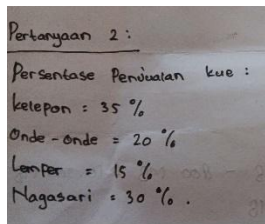 Pertanyaan 2 :
Persentase Penjualan kue :
kelepon = 35 %
Onde - onde = 20 %
Lemper = 15 %
Nagasari = 30 % .